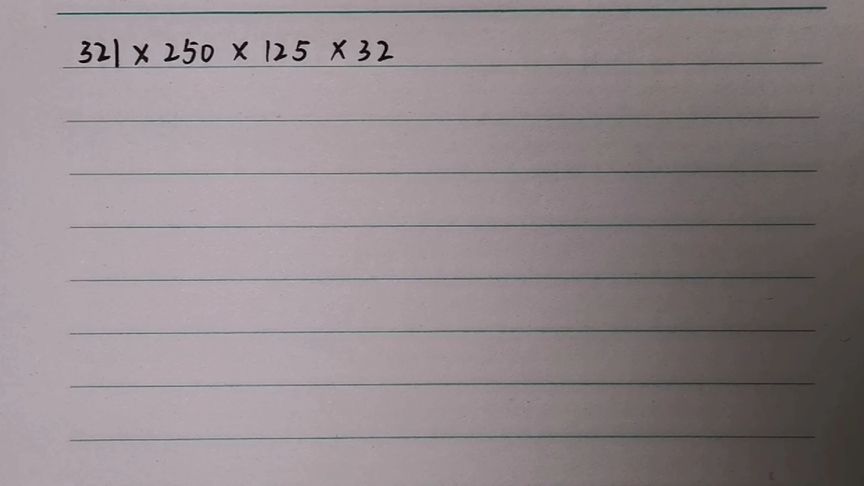 321 × 250 × 125 × 32